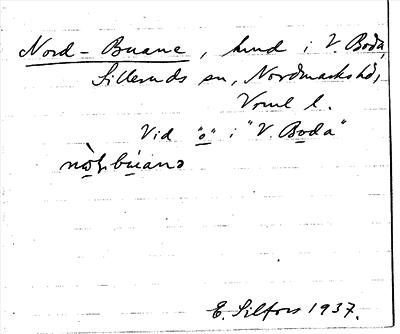 Nord-Buane, lund i V. Boda,
Silleruds sn, Nordmarks hd,
Vrml l.
Vid "o" i "V. Boda"
E. Silfors 1937.